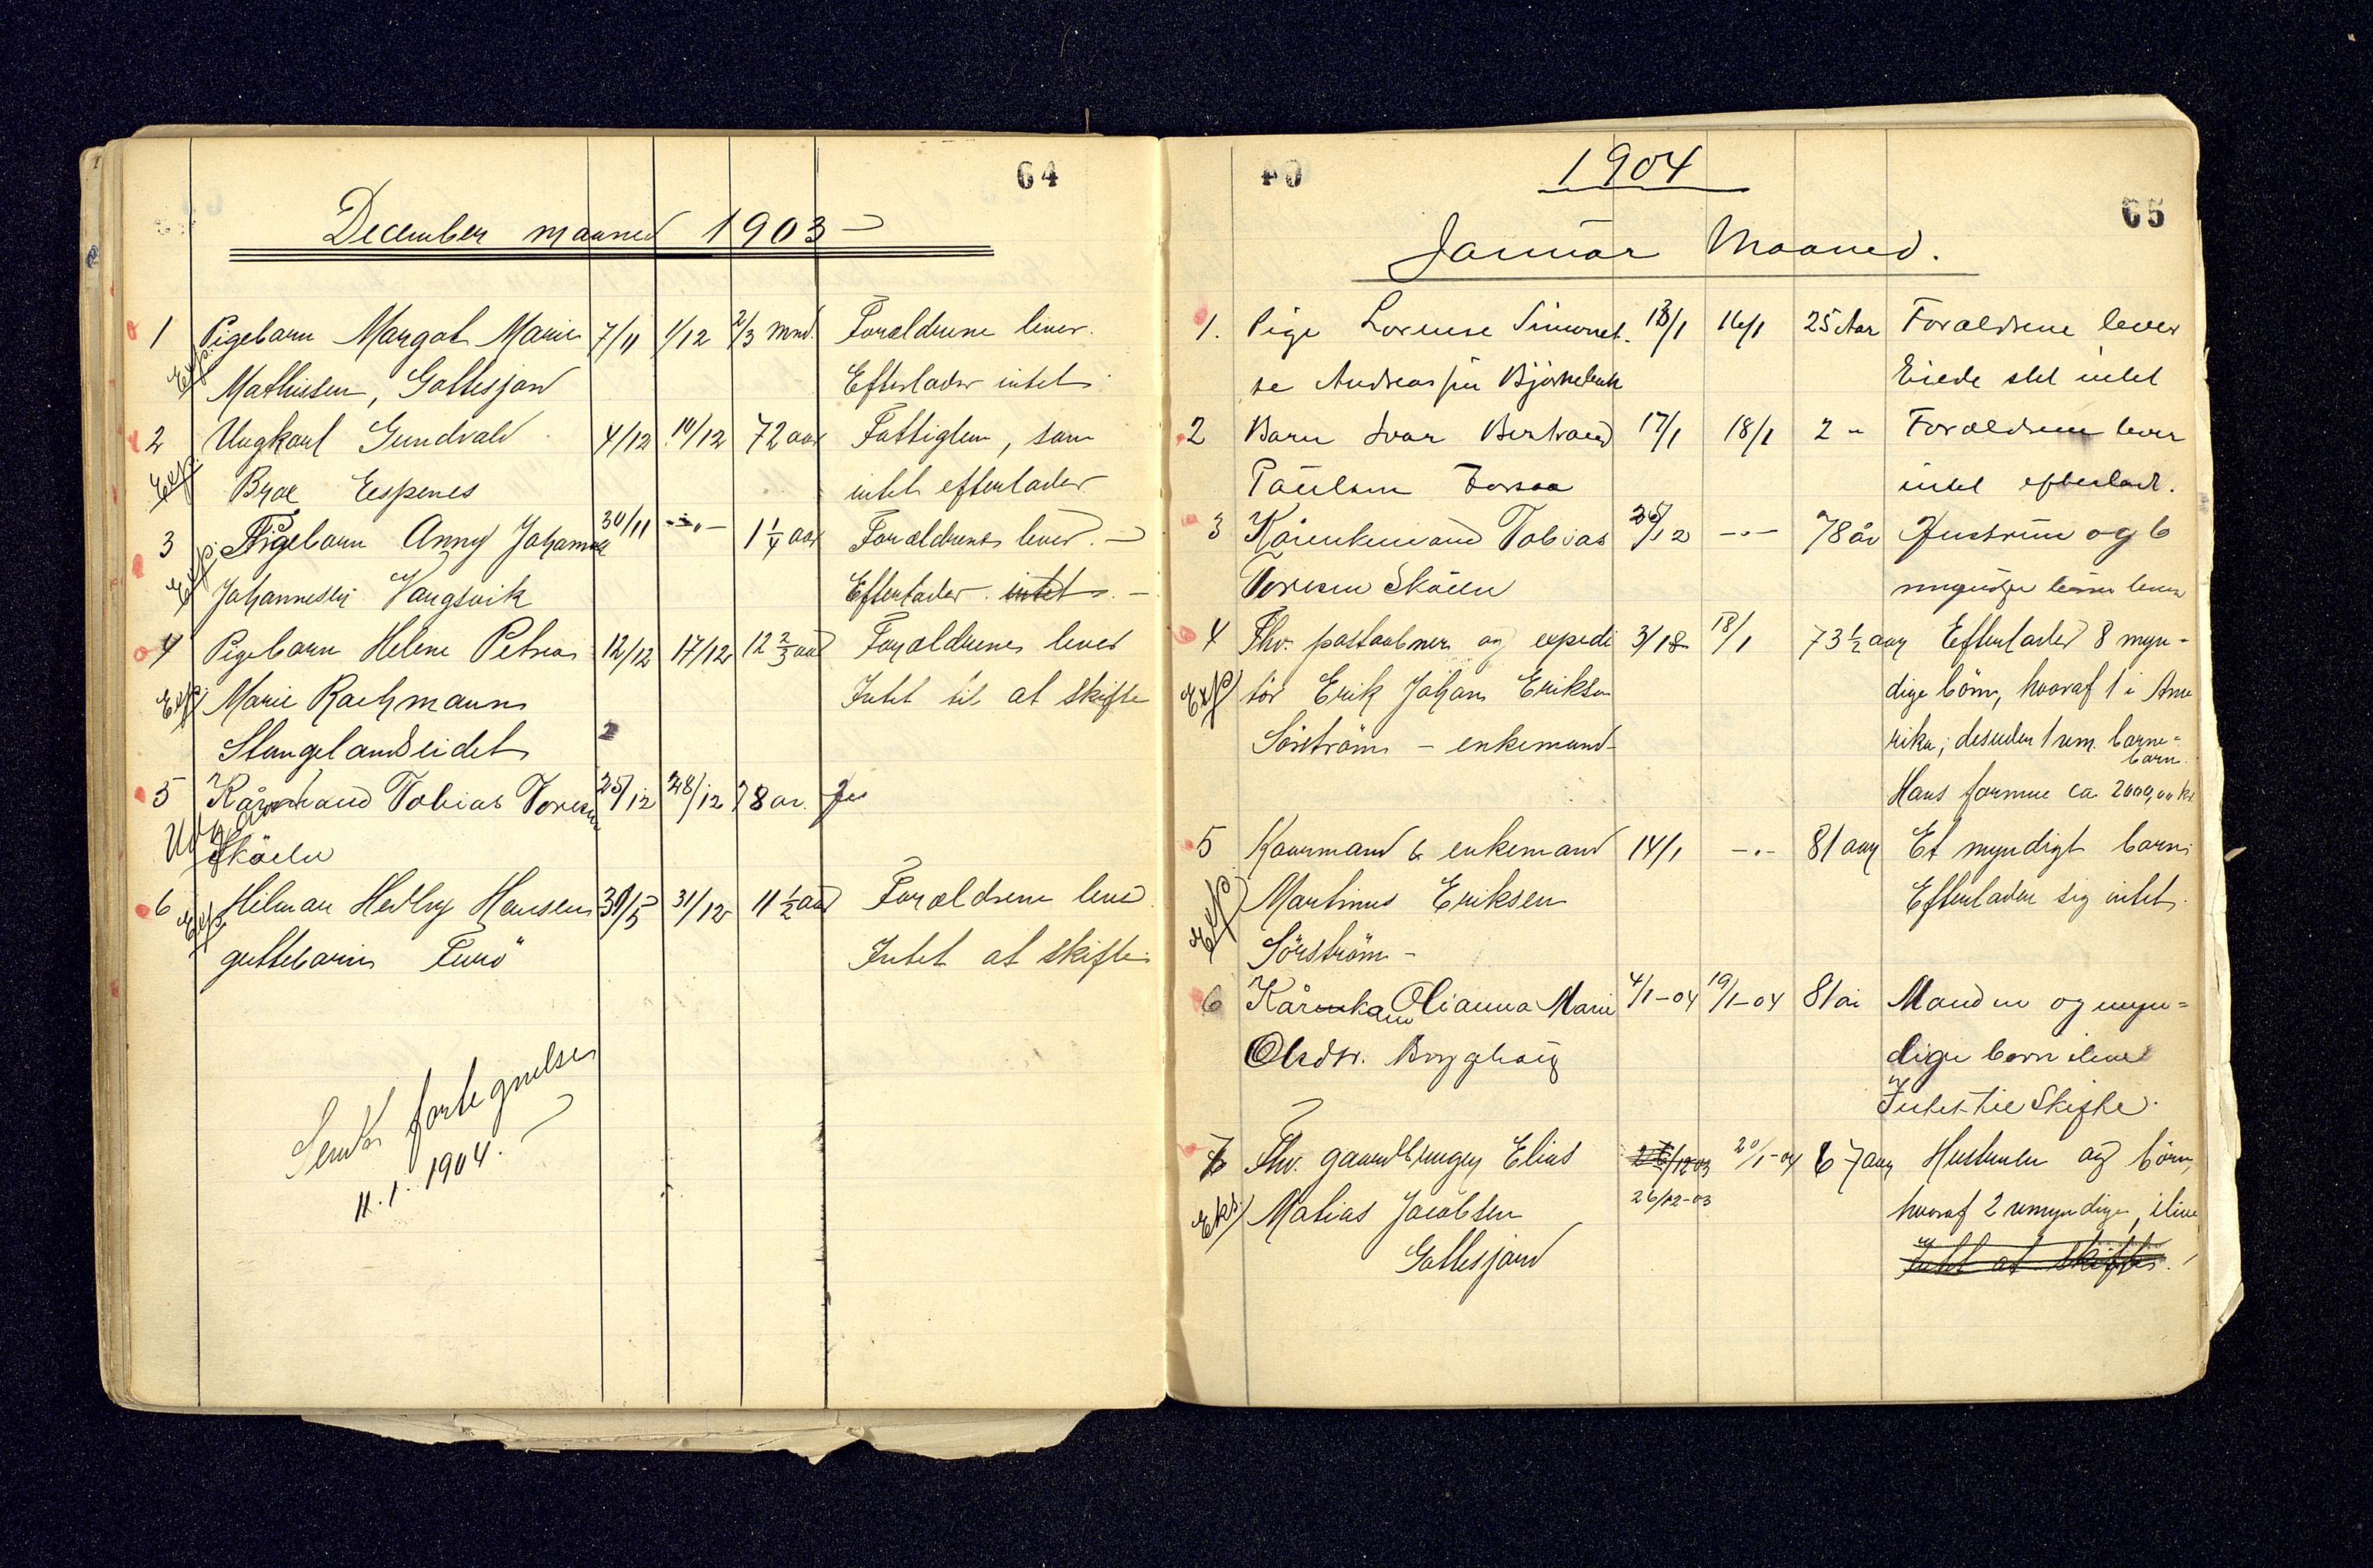 64
December maaned 1903
1 Pigebarn Margot Marie 7/11 1/12 2/3 mnd. Forældrene lever.
Exp. Mathisen, Gottesjord Efterlader intet.
2 Ungkarl Gundvald 4/12 10/12 72 aar Fattiglem, som
Exp. Broe Espenes intet efterlader
3 Pigebarn Anny Johanna 30/11 -"- 1 1/4 aar Forældrene lever.
Exp. Johannesen Vangsvik Efterlader intet.
4 Pigebarn Helene Petrea 12/12 17/12 12 2/3 aar Forældrene lever
Exp. Marie Rachmann Intet til at skifte
Stangelandseidet
5 Kårmand Tobias 25/12 28/12 78 år.
Udgår Skøelv
6 Hilmar Hedley Hansen 31/12 11 1/2 aar Forældrene lever
Exp. guttebarn Furø Intet at skifte
Sendt fortegnelse
11.1.1904.
40
1904
65
Januar Maaned.
1. Pige Lorense Simonet- 13/1 16/1 25 Aar Forældrene lever
te Andreassen Eiede slet intet
2 Barn Ivar Bertrand 17/1 18/1 2 " Forældrene lever
Paulsen Forsaa intet efterladt.
3 Kårenkemand Tobias 25/12 -"- 78 år Hustru og 6
Skøelv myndige børn lever
4 Fhv. postaabner og expedi 3/1 18/1 73 1/2 aar Efterlader 8 myn-
Exp. tør Erik Johan Eriksen dige børn, hvoraf 1 i Ame
Sørstrøm - enkemand- rika; desuden 1 um. barne-
barn.
Hans formue ca 2000,00 kr.
5 Kaarmand & enkemand 14/1 -"- 81 aar Et myndigt barn.
Exp. Martinus Eriksen Efterlader sig intet.
Sørstrøm -
6 Kårkone Olianna Marie 4/1-04 19/1-04 81 år Manden og myn-
Olsdtr. Brygghaug dige børn ilive
Intet til Skifte.
7 Fhv. gaardbruger Elias 26/12 03 20/1-04 67 aar Hustruen og børn,
Eks. Matias Jacobsen 26/12-03 hvoraf 2 umyndige, ilive
Gottesjord Intet at skifte.